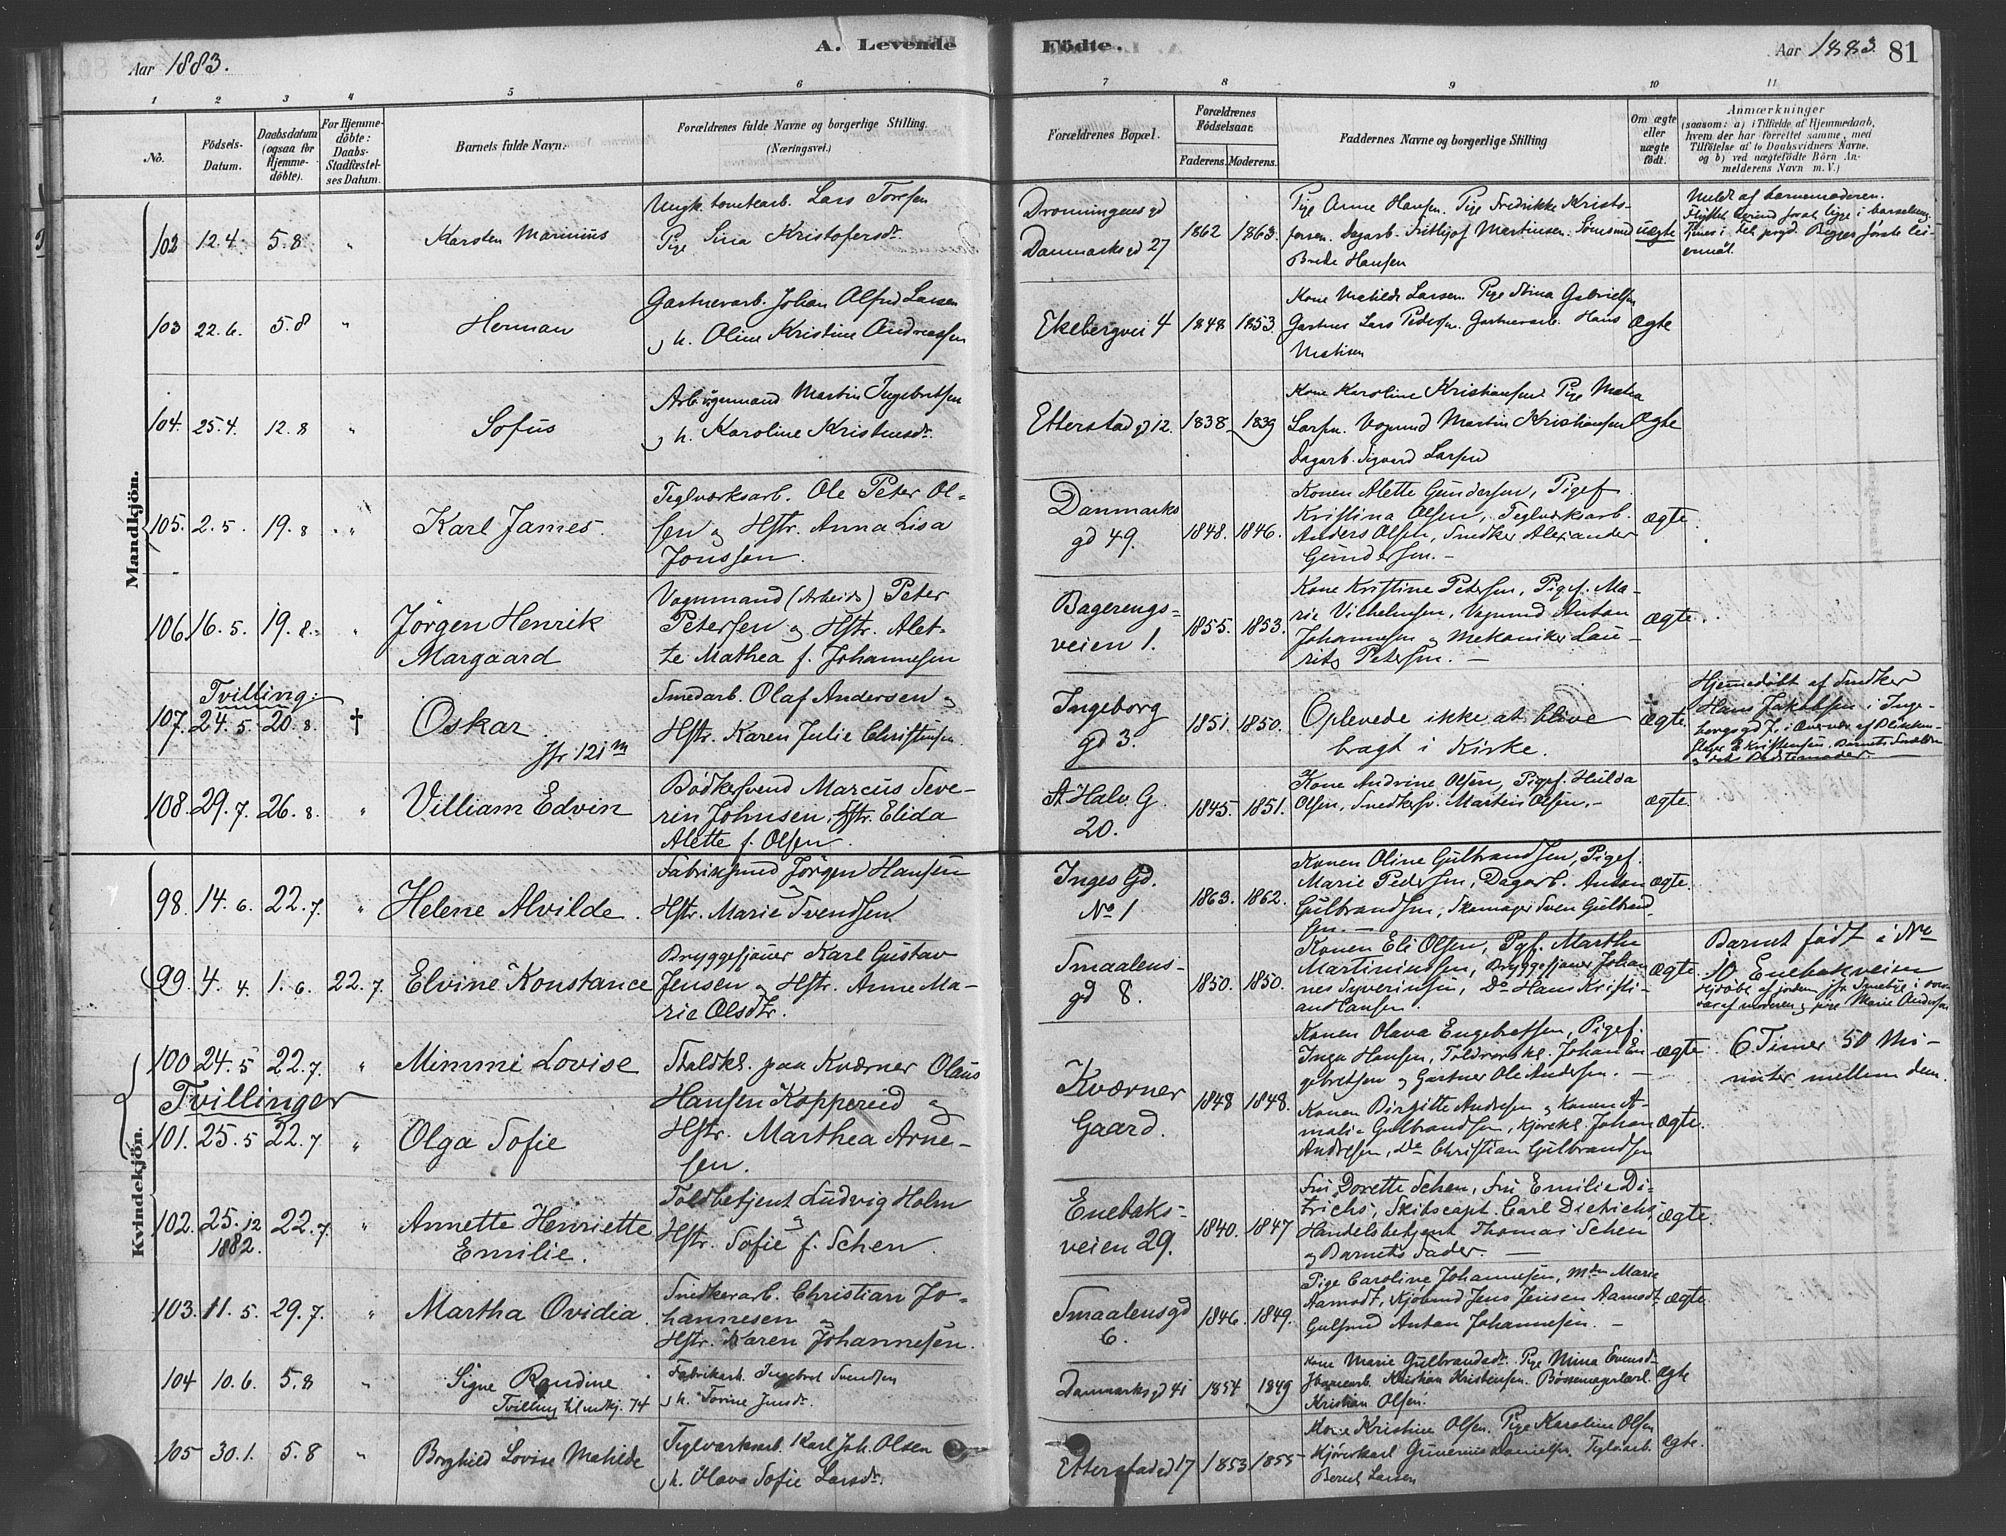 Aar 1883.
A. Levende Födte.
Aar 1883.
81
1 2 3 4 5 6 7 8 9 10 11
No.
Födsels-Datum.
Daabsdatum (ogsaa for Hjemme-döbte).
For Hjemme-döbte: Daabs-Stadfæstel-ses Datum.
Barnets fulde Navn.
Forældrenes fulde Navne og borgerlige Stilling. (Næringsvei.)
Forældrenes Bopæl.
Forældrenes Födselsaar.
Faderens. Moderens.
Faddernes Navne og borgerlige Stilling
Om ægte eller uægte födt.
Anmærkninger
(saasom: a) i Tilfælde af Hjemmedaab, hvem der har forrettet samme, med Tilföielse af to Daabsvidners Navne. og b) ved uægtefödte Börn An-melderens Navn m. V.)
Mandkjön.
102 12.4. 5.8 " Karsten Marinius
Ungk. tomtearb. Lars Toresen
Pige Sina Kristofersdr.
Dronningens gd
Danmarks gd 27
1862 1863.
Pige Anne Hansen. Pige Fredrikke Kristo-
fersen. Dagarb. Frithjof Martinsen. Sömsmed
Brede Hansen
uægte
Meldt af barnemoderen.
103 22.6. 5.8 " Herman
Gartnerarb. Johan Alfred Larsen
og h. Oline Kristine Andreassen
Ekebergvei 4
1848 1853.
Kone Matilde Larsen. Pige Stina Gabrielsen
Gartner Lars Pedersen. Gartnerarb. Hans
Matisen
Ægte
104. 25.4. 12.8 " Sofus
Arb.vognmand Martin Ingebretsen
og h. Karoline Kristensdr.
Etterstad gd 12.
1838 1839
Kone Karoline Kristiansen. Pige Maka
Larsen. Vognmd Martin Kristiansen
Dagarb. Sigvard Larsen
Ægte
105. 2.5. 19.8 " Karl James.
Teglværksarb. Ole Peter Ol-
sen og Hstr. Anna Lisa
Jonsson.
Danmarks
gd 49.
1848. 1846.
Konen Alette Gundersen, Pigef.
Kristina Olsen, Teglværksarb.
Anders Olsen, Snedker Alexander
Gundersen.
ægte.
106. 16.5. 19.8. " Jörgen Henrik
Margaard
Vognmand (Arbeids) Peter
Petersen og Hstr. Alet-
te Mathea f. Johannesen
Bagerengs-
veien 1.
1855. 1853.
Kone Kristine Petersen, Pigef. Ma-
rie Vilhelmsen, Vognmd Anton
Johannesen og Mekaniker Lau-
rits Petersen.
ægte.
Tvilling:
107. 24.5 20.8 † Oskar
Jfr 121 m
Smedarb. Olaf Andersen og
Hstr. Karen Julie Christensen
Ingeborg
gd 3.
1851. 1850.
Oplevede ikke at blive
bragt i Kirke.
† ægte.
Hjemmedöbt af Snedker
Hans Jakobsen i Inge-
borgs gd
108. 29.7. 26.8. " Villiam Edvin
Bödkersvend Marcus Seve-
rin Johnsen. Hstr. Elida
Alette f. Olsen
St. Halv. G.
20.
1845. 1851.
Kone Andrine Olsen, Pigef. Hilda
Olsen, Snedkersv. Martin Olsen.
ægte
Kvindekjön.
98. 14.6. 22.7. " Helene Alvilde.
Fabriksmd Jörgen Hansen
og Hstr. Marie Svendsen
Inges Gd.
No 1
1863. 1862.
Konen Oline Gulbrandsen, Pigef.
Marie Pedersen, Dagarb. Anton
Gulbrandsen, Skomager Sven Gulbrand-
sen.
ægte.
99. 4.4. 1.6. 22.7. Elvine Konstance
Bryggesjouer Karl Gustav
Jensen og Hstr. Anne Ma-
rie Olsdtr.
Smaalens-
gd 8.
1850. 1850.
Konen Eli Olsen, Pgf. Marthe
Martiniussen, Bryggesjouer Johan-
nes Syverinsen, Do Hans Kristi-
an Hansen.
ægte
Barnet födt i No
10 Enebakveien
100 24.5 22.7. " Mimmi Lovise
Tvillinger
101. 25.5 22.7 " Olga Sofie
Staldkl. paa Kværner Olaus
Hansen Koppereid og
Hstr. Marthea Arne-
sen.
Kværner
Gaard.
1848 1848.
Konen Olava Engebretsen, Pigef.
Inga Hansen, Johan En-
gebretsen og Gartner Ole Andersen.
ægte
Konen Birgitte Andresen og Konen A-
malie Gulbrandsen, Kjörekl. Johan
Andresen, Do Christian Gulbrandsen
ægte.
6 Timer 50 Mi-
nuter mellem dem.
102. 25.12 1882. 22.7. " Annette Henriette
Emilie.
Toldbetjent Ludvig Holm
og Hstr. Sofie f. Schen.
Enebaks-
veien 29.
1840. 1847
Fru Dorette Schen, Fru Emilie Di-
trichs, Skibscapt. Carl Dietrichs,
Handelsbetjent Thomas Schen
og Barnets Fader.
ægte.
103. 11.5. 29.7. " Martha Ovidia.
Snedkerarb. Christian Jo-
hannesen og
Hstr. Karen Johannesen.
Smaalensgd
6.
1846. 1849.
Pige Caroline Johannesen, Mdm Marie
Aamodt, Kjöbmd Jens Jensen Aamodt
Gulsmed Anton Johannesen.
ægte.
104 10.6. 5.8 " Signe Randine
Tvilling til mdkj. 74
Fabrikarb. Ingebret Svendsen
og h. Torine Jensdr.
Danmarks gd 41
1854 1849
Kone Marie Gulbrandsdr. Pige Mina Evensdr.
Kristian Kristensen. Bössemagerlærl.
Kristian Olsen.
ægte
105 30.1. 5.8 " Borghild Lovise Matilde
Teglværksarb. Karl Joh. Olsen
og h. Olava Sofie Larsdr.
Etterstad gd 17
1853 1855
Kone Kristine Olsen. Pige Karoline Olsen
Kjörekarl Gunerius Danielsen.
Bernt Larsen
ægte.